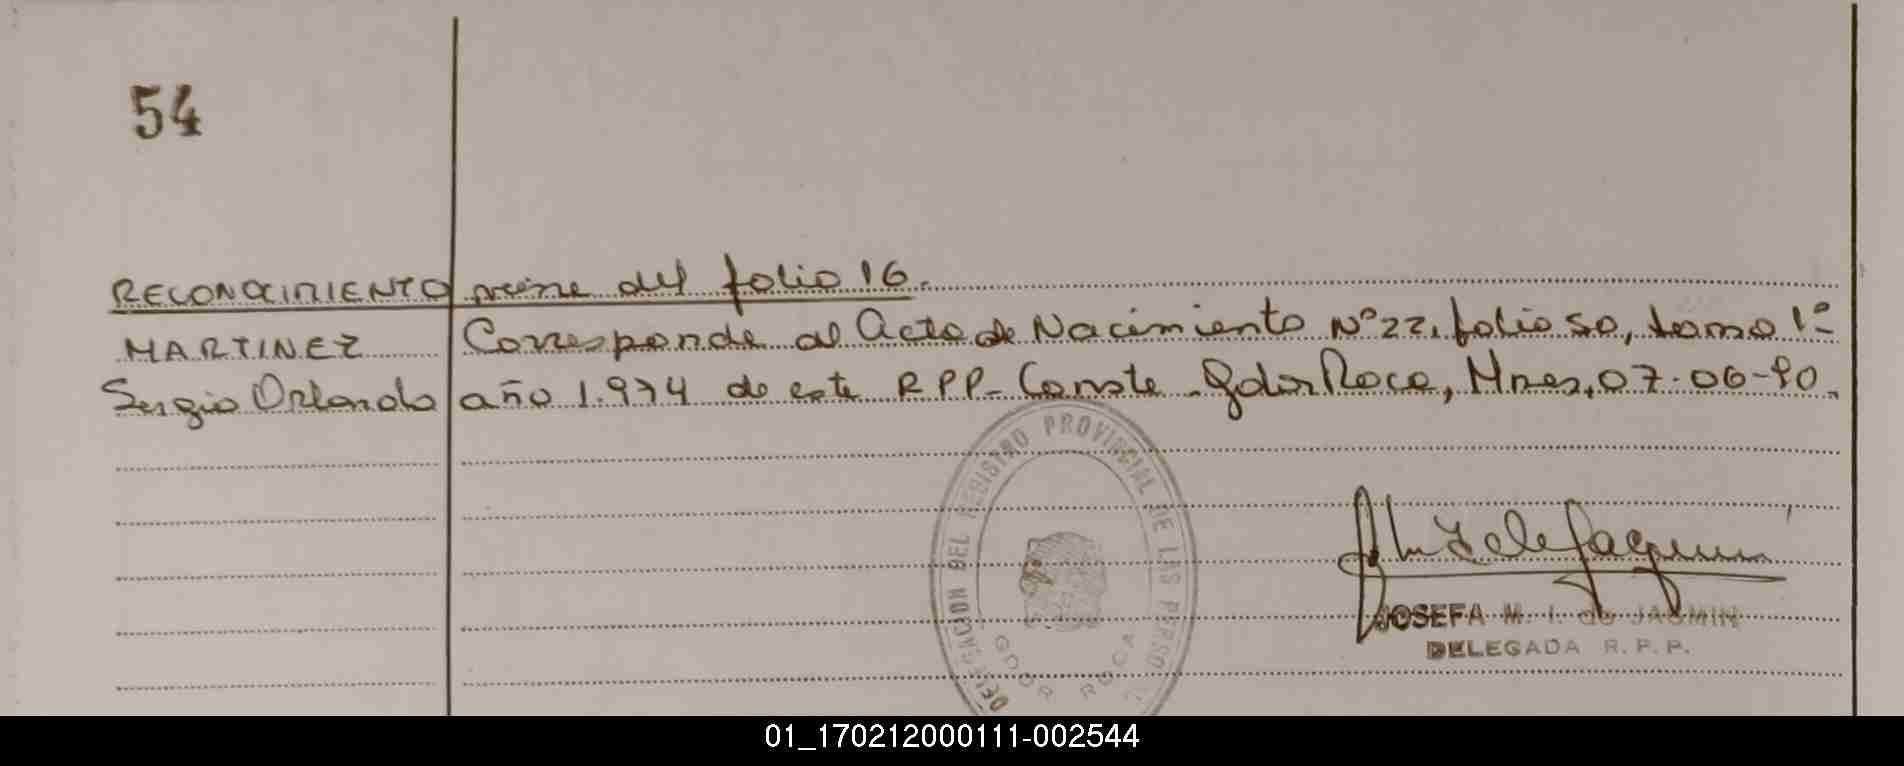 54
RECONOCIMIENTO viene del folio 16.
MARTINEZ Corresponde al Acta de Nacimiento Nº 22, folio 50, tomo 1º
Sergio Orlando año 1.974 de este RPP- Conste - Gdor Roca, Mnes, 07-06-90.
DELEGACION DEL REGISTRO PROVINCIAL DE LAS PERSO
GDOR ROCA
JOSEFA M. I. de JASMIN
DELEGADA R. P. P.
01_170212000111-002544